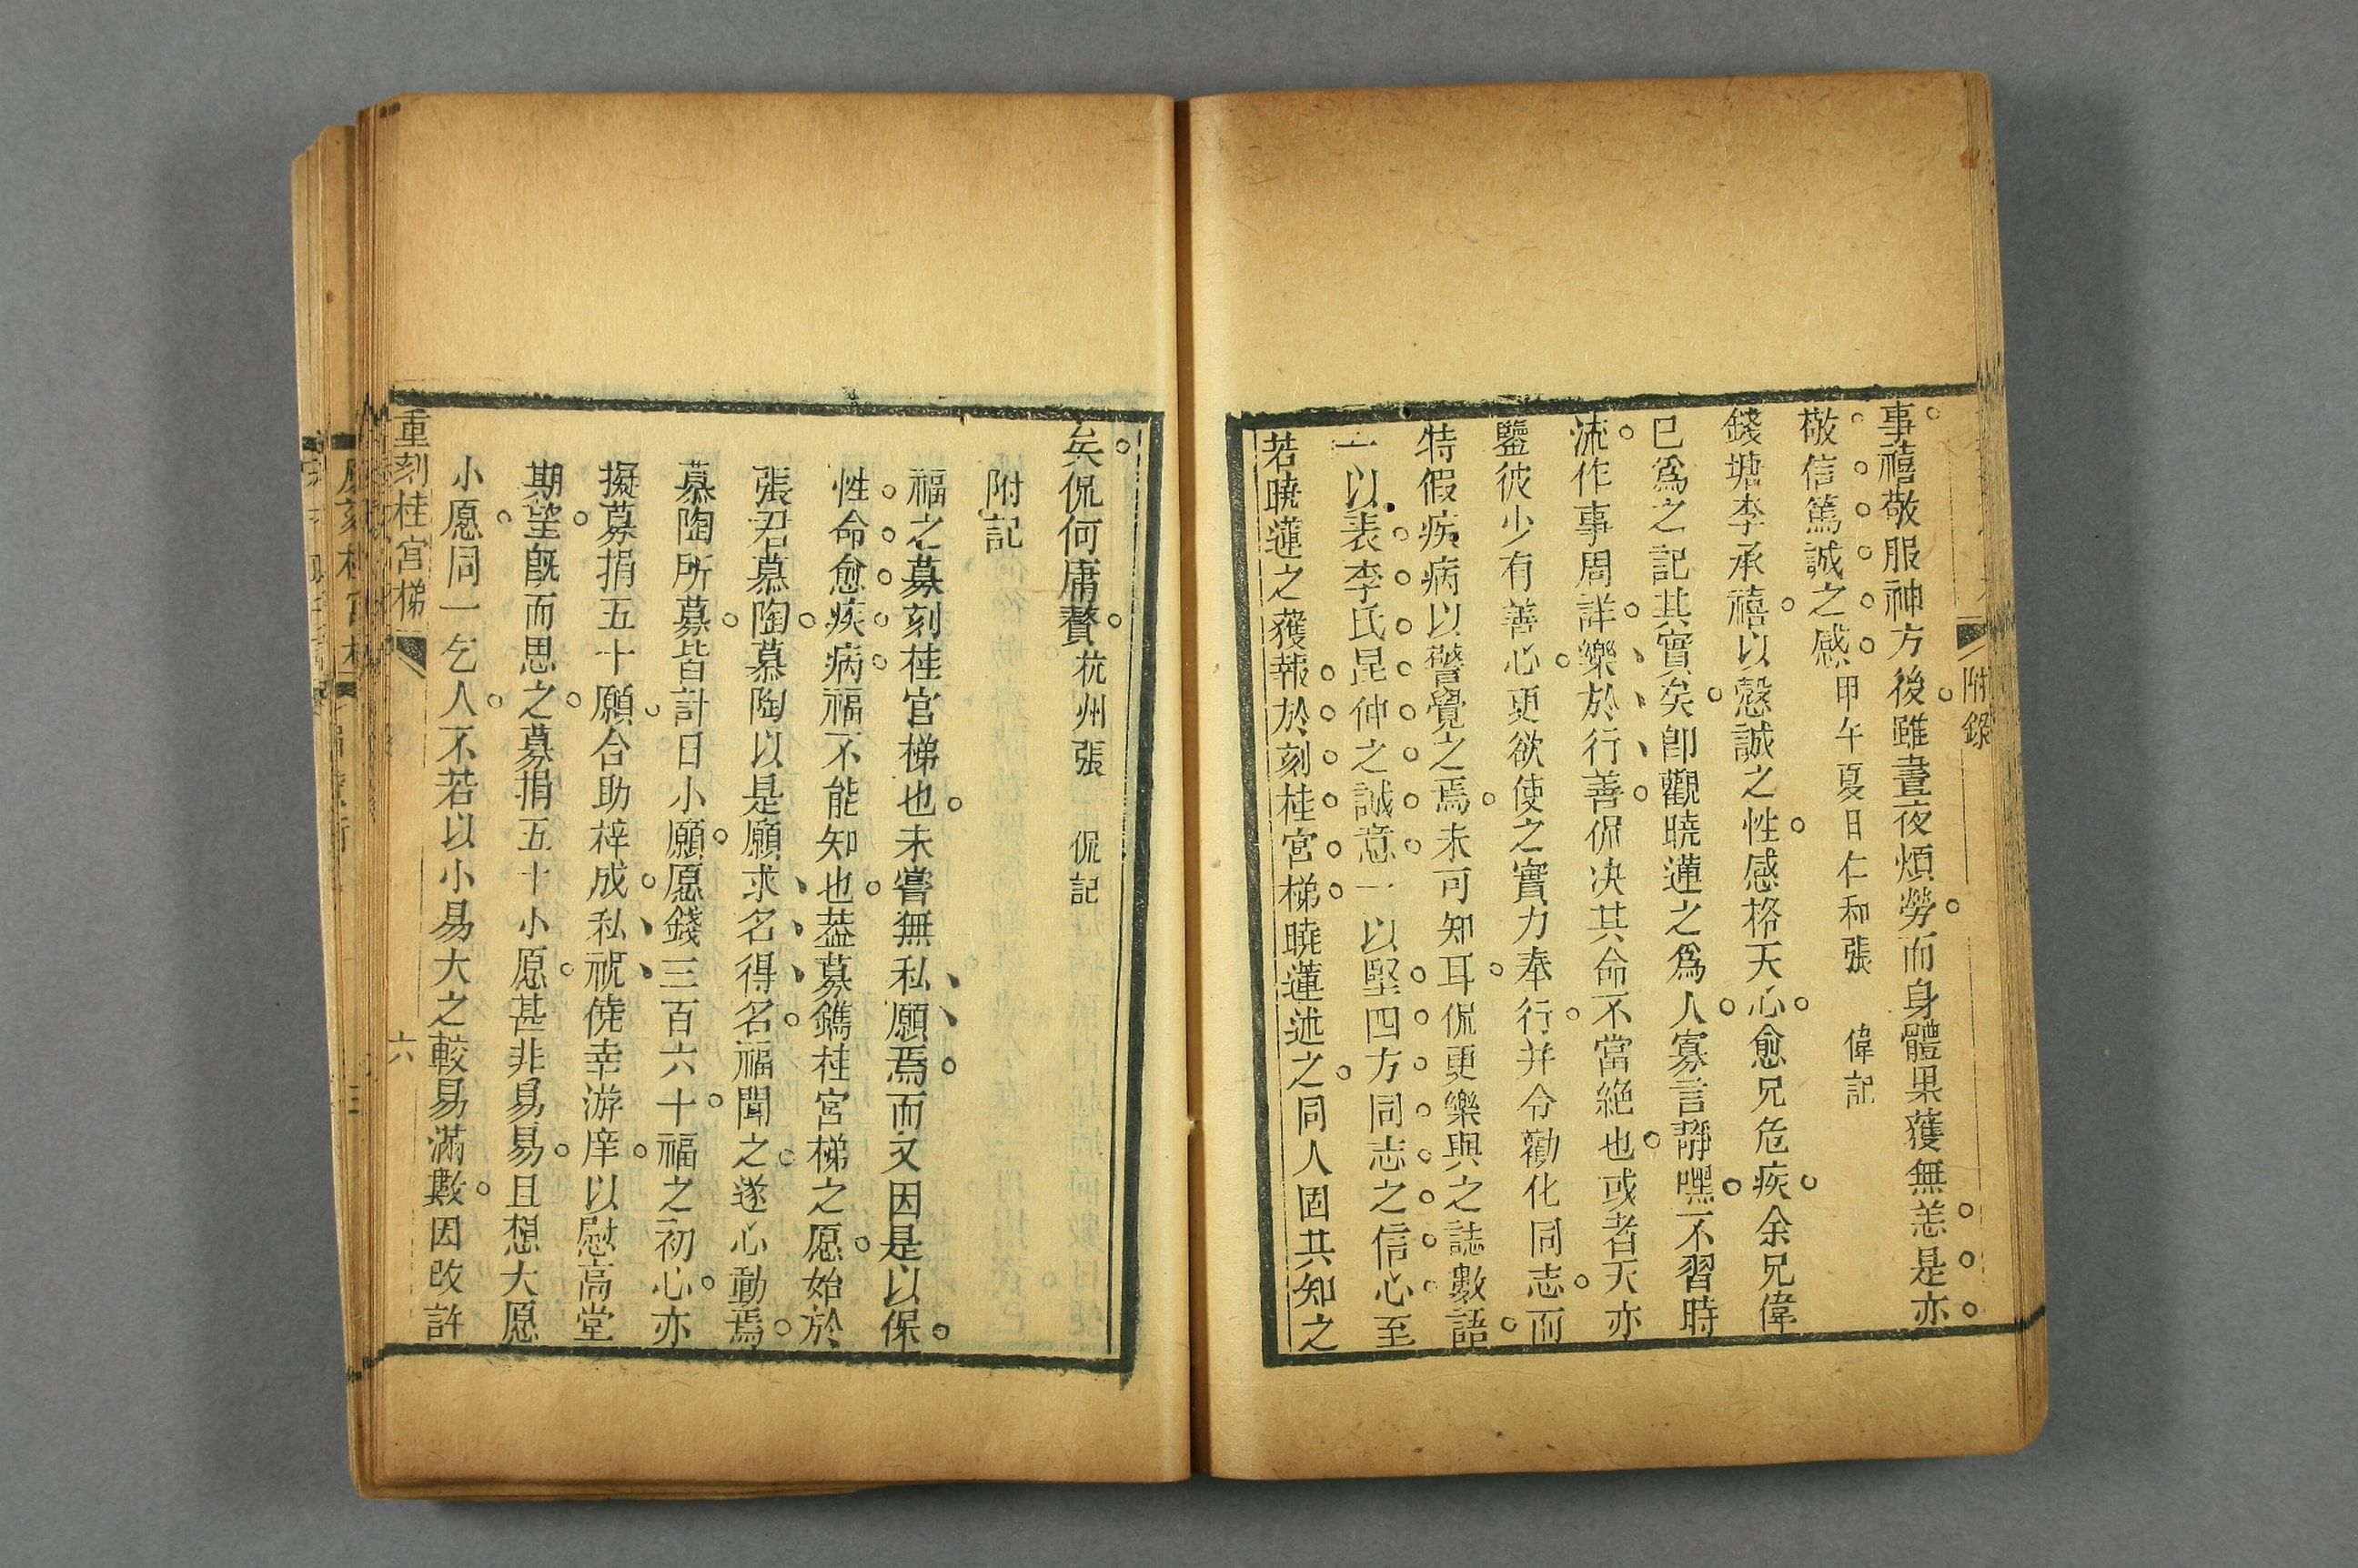 附錄
事禧敬服神方後雖晝夜煩勞而身體果獲無恙是亦
敬信篤誠之感甲午夏日仁和張 偉記
錢塘李承禧以慤誠之性感格天心愈兄危疾余兄偉
已爲之記其實矣卽觀曉蓮之爲人寡言靜嘿不習時
流作事周詳樂於行善侃决其命不當絕也或者天亦
鑒彼少有善心更欲使之實力奉行并令勸化同志而
特假疾病以警覺之焉未可知耳侃更樂與之誌數語
一以表李氏昆仲之誠意一以堅四方同志之信心至
若曉蓮之獲報於刻桂宮梯曉蓮述之同人固共知之
矣侃何庸贅杭州張 侃記
附記
福之募刻桂宮梯也未嘗無私願焉而文因是以保
性命愈疾病福不能知也葢募鐫桂宮梯之愿始於
張君慕陶慕陶以是願求名得名福聞之遂心動焉
慕陶所募皆計日小願愿錢三百六十福之初心亦
擬募捐五十願合助梓成私祝僥幸游庠以慰高堂
期望旣而思之募捐五十小愿甚非易易且想大愿
小愿同一乞人不若以小易大之較易滿數因改許
重刻桂宮梯 六